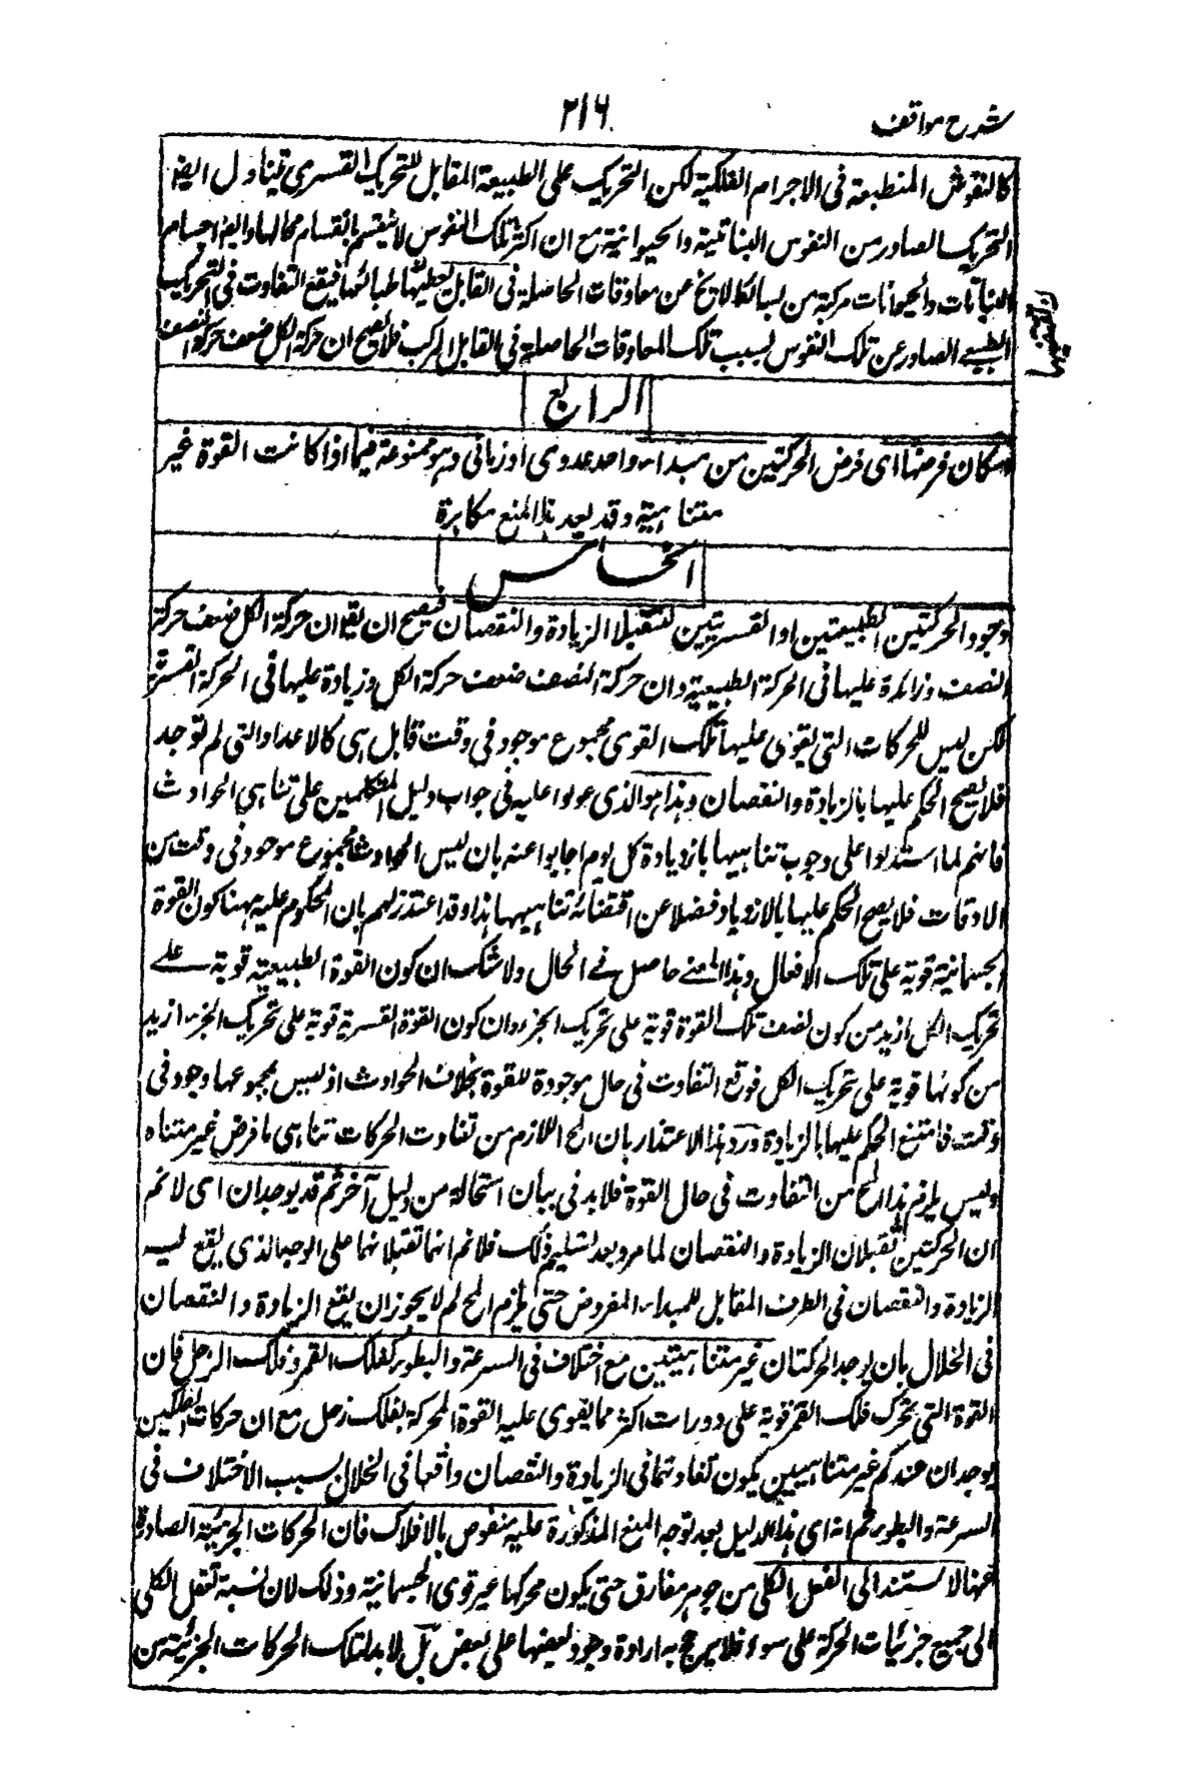 شرح مواقف
٢١٦
كالنفوس المنطبعة فى الاجرام الفلكية لكن التحريك على الطبيعة المقابل للتحريك القسرى يتناول ايضا
التحريك الصادر من النفوس النباتية والحيوانية مع ان اكثر تلك النفوس لا ينقسم بانقسام محالها وايضا اجسام
النباتات والحيوانات مركبة من بسائط لا تخ عن معاوقات الحاصلة فى القابل يعطيها طبائعها فيقع التفاوت فى التحريك
الطبيعى الصادر عن تلك النفوس بسبب تلك المعاوقات الحاصلة فى القابل المركب فلا يصح ان حركة الكل ضعف حركة النصف
الرابع
امكان فرضها اى فرض الحركتين من مبداء واحد عددى او زمانى وهو ممنوعة فيما اذا كانت القوة غير
متناهية وقد يعد هذا المنع مكابرة
الخامس
وجود الحركتين الطبيعتين او القسريتين لتقبلا الزيادة والنقصان فيصح ان يقال ان حركة الكل ضعف حركة
النصف وزائدة عليها فى الحركة الطبيعية وان حركة النصف ضعف حركة الكل وزيادة عليها فى الحركة القسرية
لكن ليس للحركات التى يقوى عليها تلك القوى مجموع موجود فى وقت قابل هى كالاعداد التى لم توجد
فلا يصح الحكم عليها بالزيادة والنقصان وهذا هو الذى عولوا عليه فى جواب دليل المتكلمين على تناهى الحوادث
فانهم لما استدلوا على وجوب تناهيها بازدياده كل يوم اجابوا عنه بان ليس الحوادث مجموع موجود فى وقت من
الاوقات فلا يصح الحكم عليها بالازدياد فضلا عن اقتضائه تناهيها هذا وقد اعتذر لهم بان المحكوم عليه ههنا كون القوة
الجسمانية قوية على تلك الافعال وهذا المعنى حاصل فى الحال ولا شك ان كون القوة الطبيعية قوية على
تحريك الكل ازيد من كون نصف تلك القوة قوية على تحريك الجزء وان كون القوة القسرية قوية على تحريك الجزء ازيد
من كونها قوية على تحريك الكل فوقع التفاوت فى حال موجودة للقوة بخلاف الحوادث اذ ليس مجموعها وجود فى
وقت فامتنع الحكم عليها بالزيادة ورد هذا الاعتذار بان المح اللازم من تفاوت الحركات تناهى ما فرض غير متناه
وليس يلزم هذا المح من التفاوت فى حال القوة فلا بد فى بيان استحالة من دليل آخر ثم قد يوجدان اى لا نم
ان الحركتين تقبلان الزيادة والنقصان لما مر وبعد تسليم ذلك فلا نم انهما تقبلانهما على الوجه الذى يقع فيه
الزيادة والنقصان فى الطرف المقابل للمبداء المفروض حتى يلزم المح لم لا يجوز ان يقع الزيادة والنقصان
فى الخلال بان يوجد الحركتان غير متناهيتين مع اختلاف فى السرعة والبطوء كفلك القمر وفلك الزحل فان
القوة التى تحرك فلك القمر قوية على دورات اكثر مما يقوى عليه القوة المحركة بفلك زحل مع ان حركات الفلكين
يوجدان عندكم غير متناهيين يكون تفاوتهما فى الزيادة والنقصان واقعا فى الخلال بسبب الاختلاف فى
السرعة والبطوء ثم انه اى هذا الدليل بعد توجه المنع المذكورة عليه منقوض بالافلاك فان الحركات الجزئية الصادرة
عنها لا تستند الى الفعل الكلى من جوهر مفارق حتى يكون محركها غير قوى الجسمانية وذلك لان نسبة تعقل الكلى
الى جميع جزئيات الحركة على سواء فلا يرجح به ارادة وجود بعضها على بعض بل لا بد لتلك الحركات الجزئية من